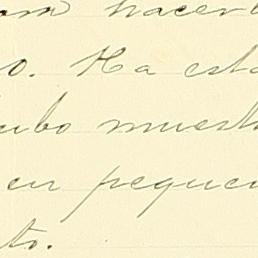 hacer
o. Ha est
ubo muest
en peque
to.